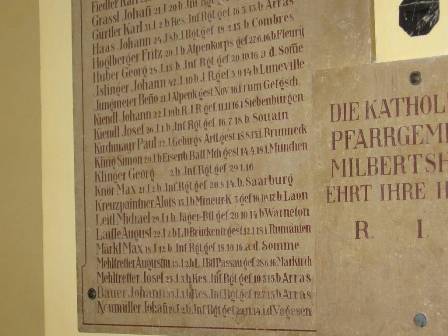 Fiedler Karl
Grassl Johañ 21.J. 20.b. Inf. Rgt.
Gürtler Karl 21.J. 2.b. Res. Inf. Rgt. gef. 16.5.15.b. Arras
Haas Johann 24.J. b. 1.R gef. 19.2.15.b. Combres
Hoglberger Fritz 20.J. b. Alpenkorps gef. 22.6.16.b. Fleury
Huber Georg 25.J. 15.b. Inf. Rgt. gef. 20.10.16 a.d. Somme
Islinger Johann 32.J. 10.b. J.R gef. 3.9.14.b. Luneville
Jungmeier Beño 21.J. Alpenk. gest. Nov. 16 i. rum. Gefgsch.
Kiendl Johann 22.J. 10.b. R.J.R gef. 11.11.16 i. Siebenburgen
Kiendl Josef 26.J. 1.b. Inf. Rgt. gef. 16.7.18.b. Souain
Kirchmayr Paul 22.J. Gebirgs Artl. gest. 18.8.15 i. Brunneck
Kling Simon 29.J. b. Eisenb. Batt. Mch. gest. 14.4.19 i. München
Klinger Georg 2.b. Inf. Rgt. gef. 29.1.16
Knor Max 21.J. 2.b. Inf. Rgt. gef. 20.8.14.b. Saarburg
Kreuzpaintner Alois 18.J. b. Mineur K. gef. 16.b. Laon
Leitl Michael 29.J. 1.b. Jäger-Btl. gef. 20.10.14.b. Warneton
Laufle August 22.J. 2.b. L.D. Brückentr. gest. i. Rumänien
Markl Max 18.J. 12.b. Inf. Rgt. gef. 18.10.16 a.d. Somme
Mehltretter Augustin 33.J. 2.b. L.J. Btl. Passau gef. 28.6.16. Markirch
Mehltretter Josef 25.J. 3.b. Res. Inf. Rgt. gef. 10.5.15.b. Arras
Bauer Johann 33.J. 1.b. Res. Inf. Rgt. gef. 12.7.15.b. Arras
Neumüller Johañ Inf. Rgt. gef. i.d. Vogesen
DIE KATHOL
PFARRGEM
MILBERTSH
EHRT IHRE
R. I.